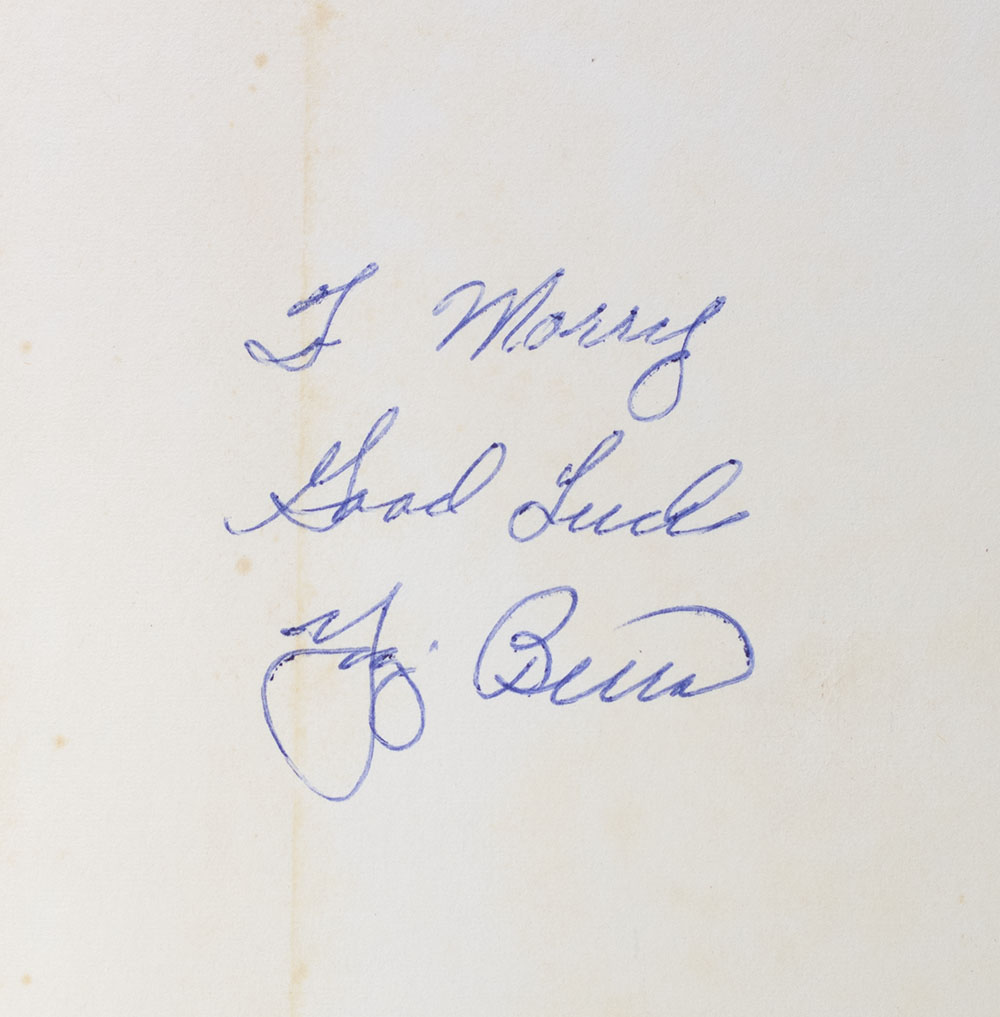 To Morry
Good Luck
Yogi Berra